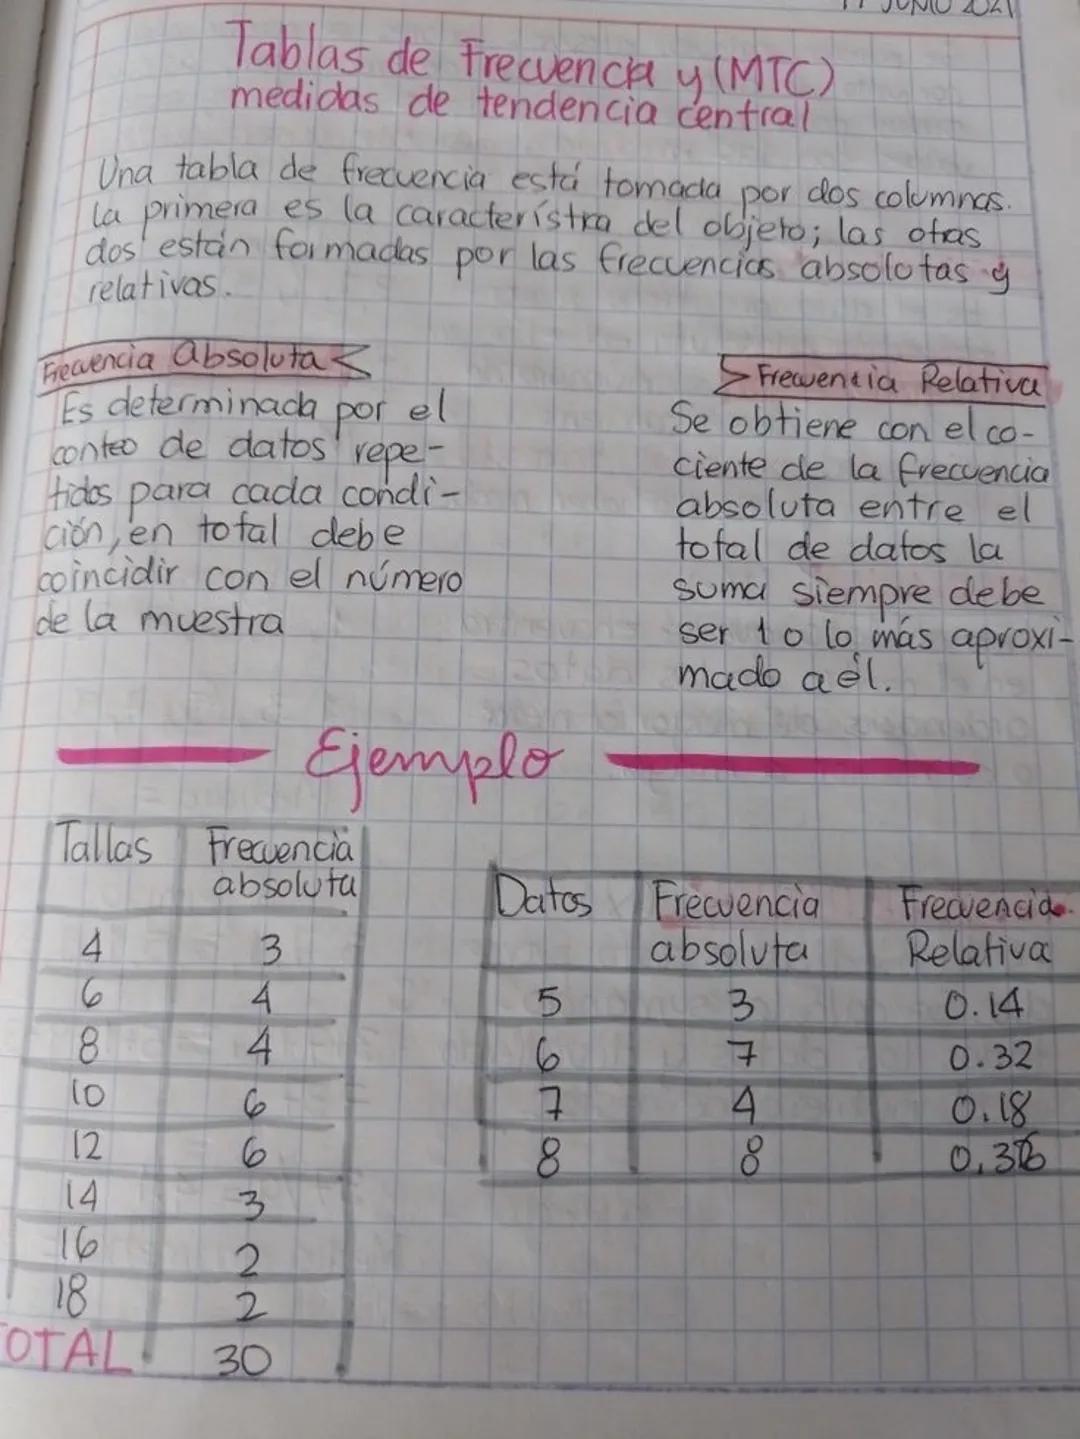 JUNIO 2021
Tablas de Frecuencia y (MTC)
medidas de tendencia central
Una tabla de frecuencia está tomada por dos columnas.
la primera es la característra del objeto; las otras
dos están formadas por las frecuencias absolutas y
relativas.
Frecuencia Absoluta
Es determinada por el
conteo de datos repe-
tidos para cada condi-
ción, en total debe
coincidir con el número
de la muestra
Frecuencia Relativa
Se obtiene con el co-
ciente de la frecuencia
absoluta entre el
total de datos la
suma siempre debe
ser 1 o lo más aproxi-
mado a él.
Ejemplo
Tallas Frecuencia
absoluta
4 3
6 4
8 4
10 6
12 6
14 3
16 2
18 2
TOTAL 30
Datos Frecuencia Frecuencia
absoluta Relativa
5 3 0.14
6 7 0.32
7 4 0.18
8 8 0.36